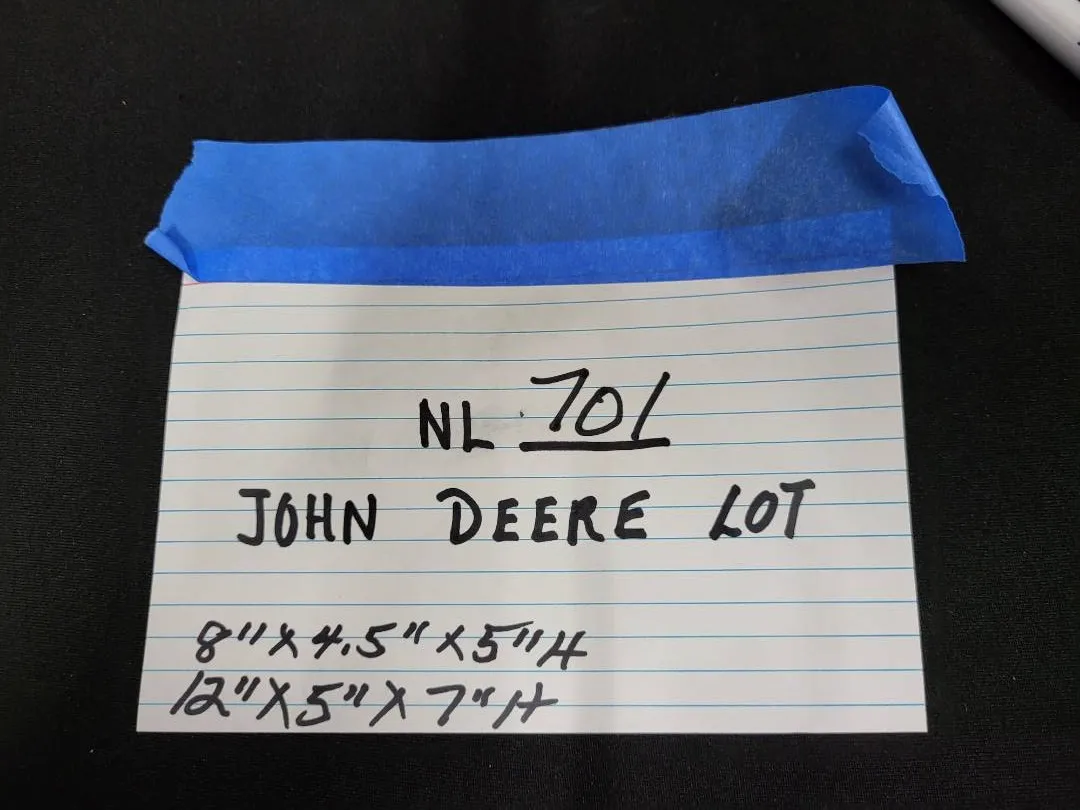 NL 701
JOHN DEERE LOT
8" X 4.5" X 5" H
12" X 5" X 7" H